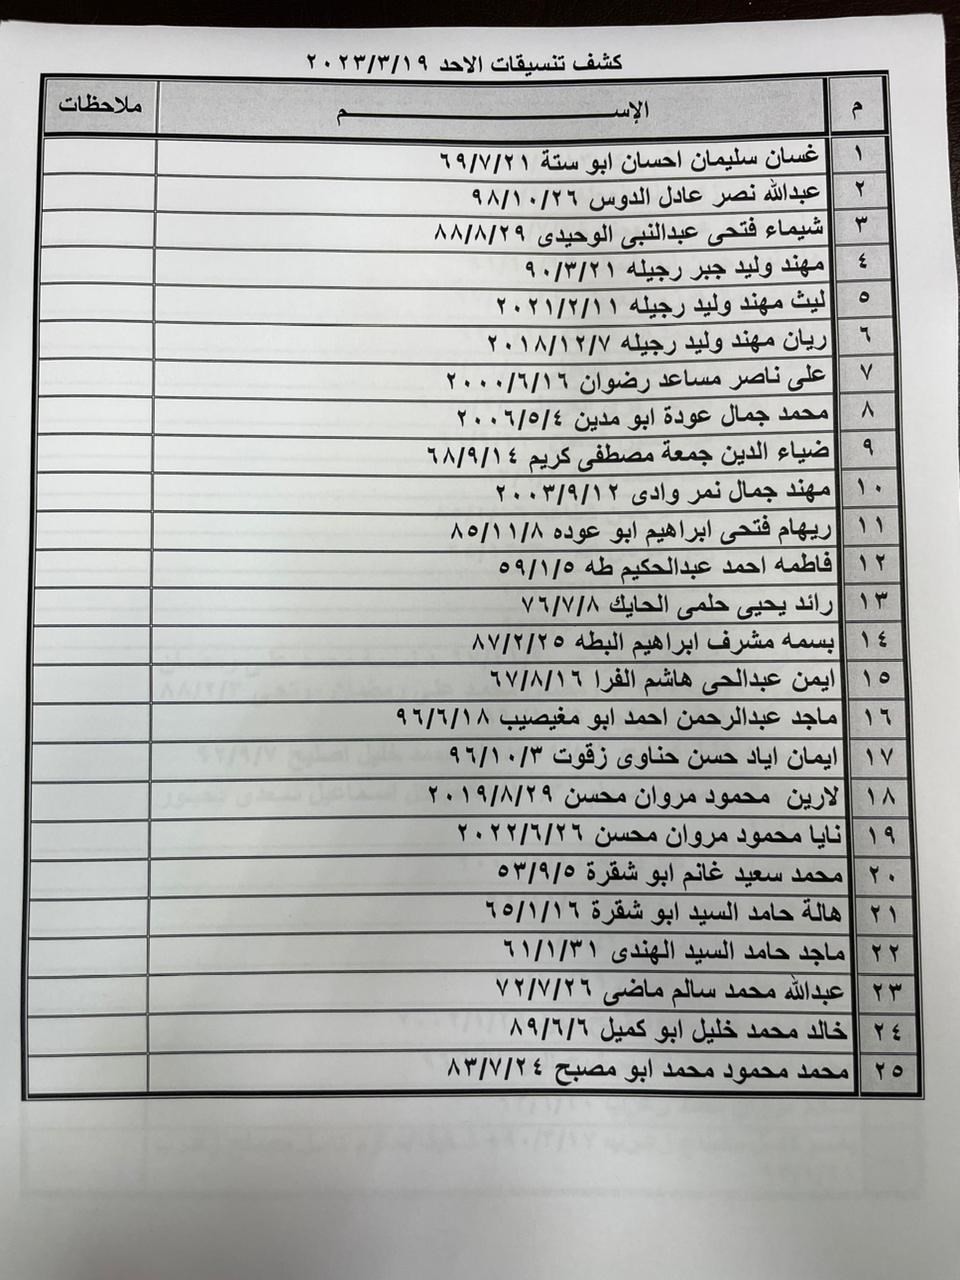 كشف تنسيقات الاحد ٢٠٢٣/٣/١٩
م الإســـــــــــــــــم ملاحظات
١ غسان سليمان احسان ابو ستة ٦٩/٧/٢١
٢ عبدالله نصر عادل الدوس ٩٨/١٠/٢٦
٣ شيماء فتحى عبدالنبى الوحيدى ٨٨/٨/٢٩
٤ مهند وليد جبر رجيله ٩٠/٣/٢١
٥ ليث مهند وليد رجيله ٢٠٢١/٢/١١
٦ ريان مهند وليد رجيله ٢٠١٨/١٢/٧
٧ على ناصر مساعد رضوان ٢٠٠٠/٦/١٦
٨ محمد جمال عودة ابو مدين ٢٠٠٦/٥/٤
٩ ضياء الدين جمعة مصطفى كريم ٦٨/٩/١٤
١٠ مهند جمال نمر وادى ٢٠٠٣/٩/١٢
١١ ريهام فتحى ابراهيم ابو عوده ٨٥/١١/٨
١٢ فاطمه احمد عبدالحكيم طه ٥٩/١/٥
١٣ رائد يحيى حلمى الحايك ٧٦/٧/٨
١٤ بسمه مشرف ابراهيم البطه ٨٧/٢/٢٥
١٥ ايمن عبدالحى هاشم الفرا ٦٧/٨/١٦
١٦ ماجد عبدالرحمن احمد ابو مغيصيب ٩٦/٦/١٨
١٧ ايمان اياد حسن حناوى زقوت ٩٦/١٠/٣
١٨ لارين محمود مروان محسن ٢٠١٩/٨/٢٩
١٩ نايا محمود مروان محسن ٢٠٢٢/٦/٢٦
٢٠ محمد سعيد غانم ابو شقرة ٥٣/٩/٥
٢١ هالة حامد السيد ابو شقرة ٦٥/١/١٦
٢٢ ماجد حامد السيد الهندى ٦١/١/٣١
٢٣ عبدالله محمد سالم ماضى ٧٢/٧/٢٦
٢٤ خالد محمد خليل ابو كميل ٨٩/٦/٦
٢٥ محمد محمود محمد ابو مصبح ٨٣/٧/٢٤